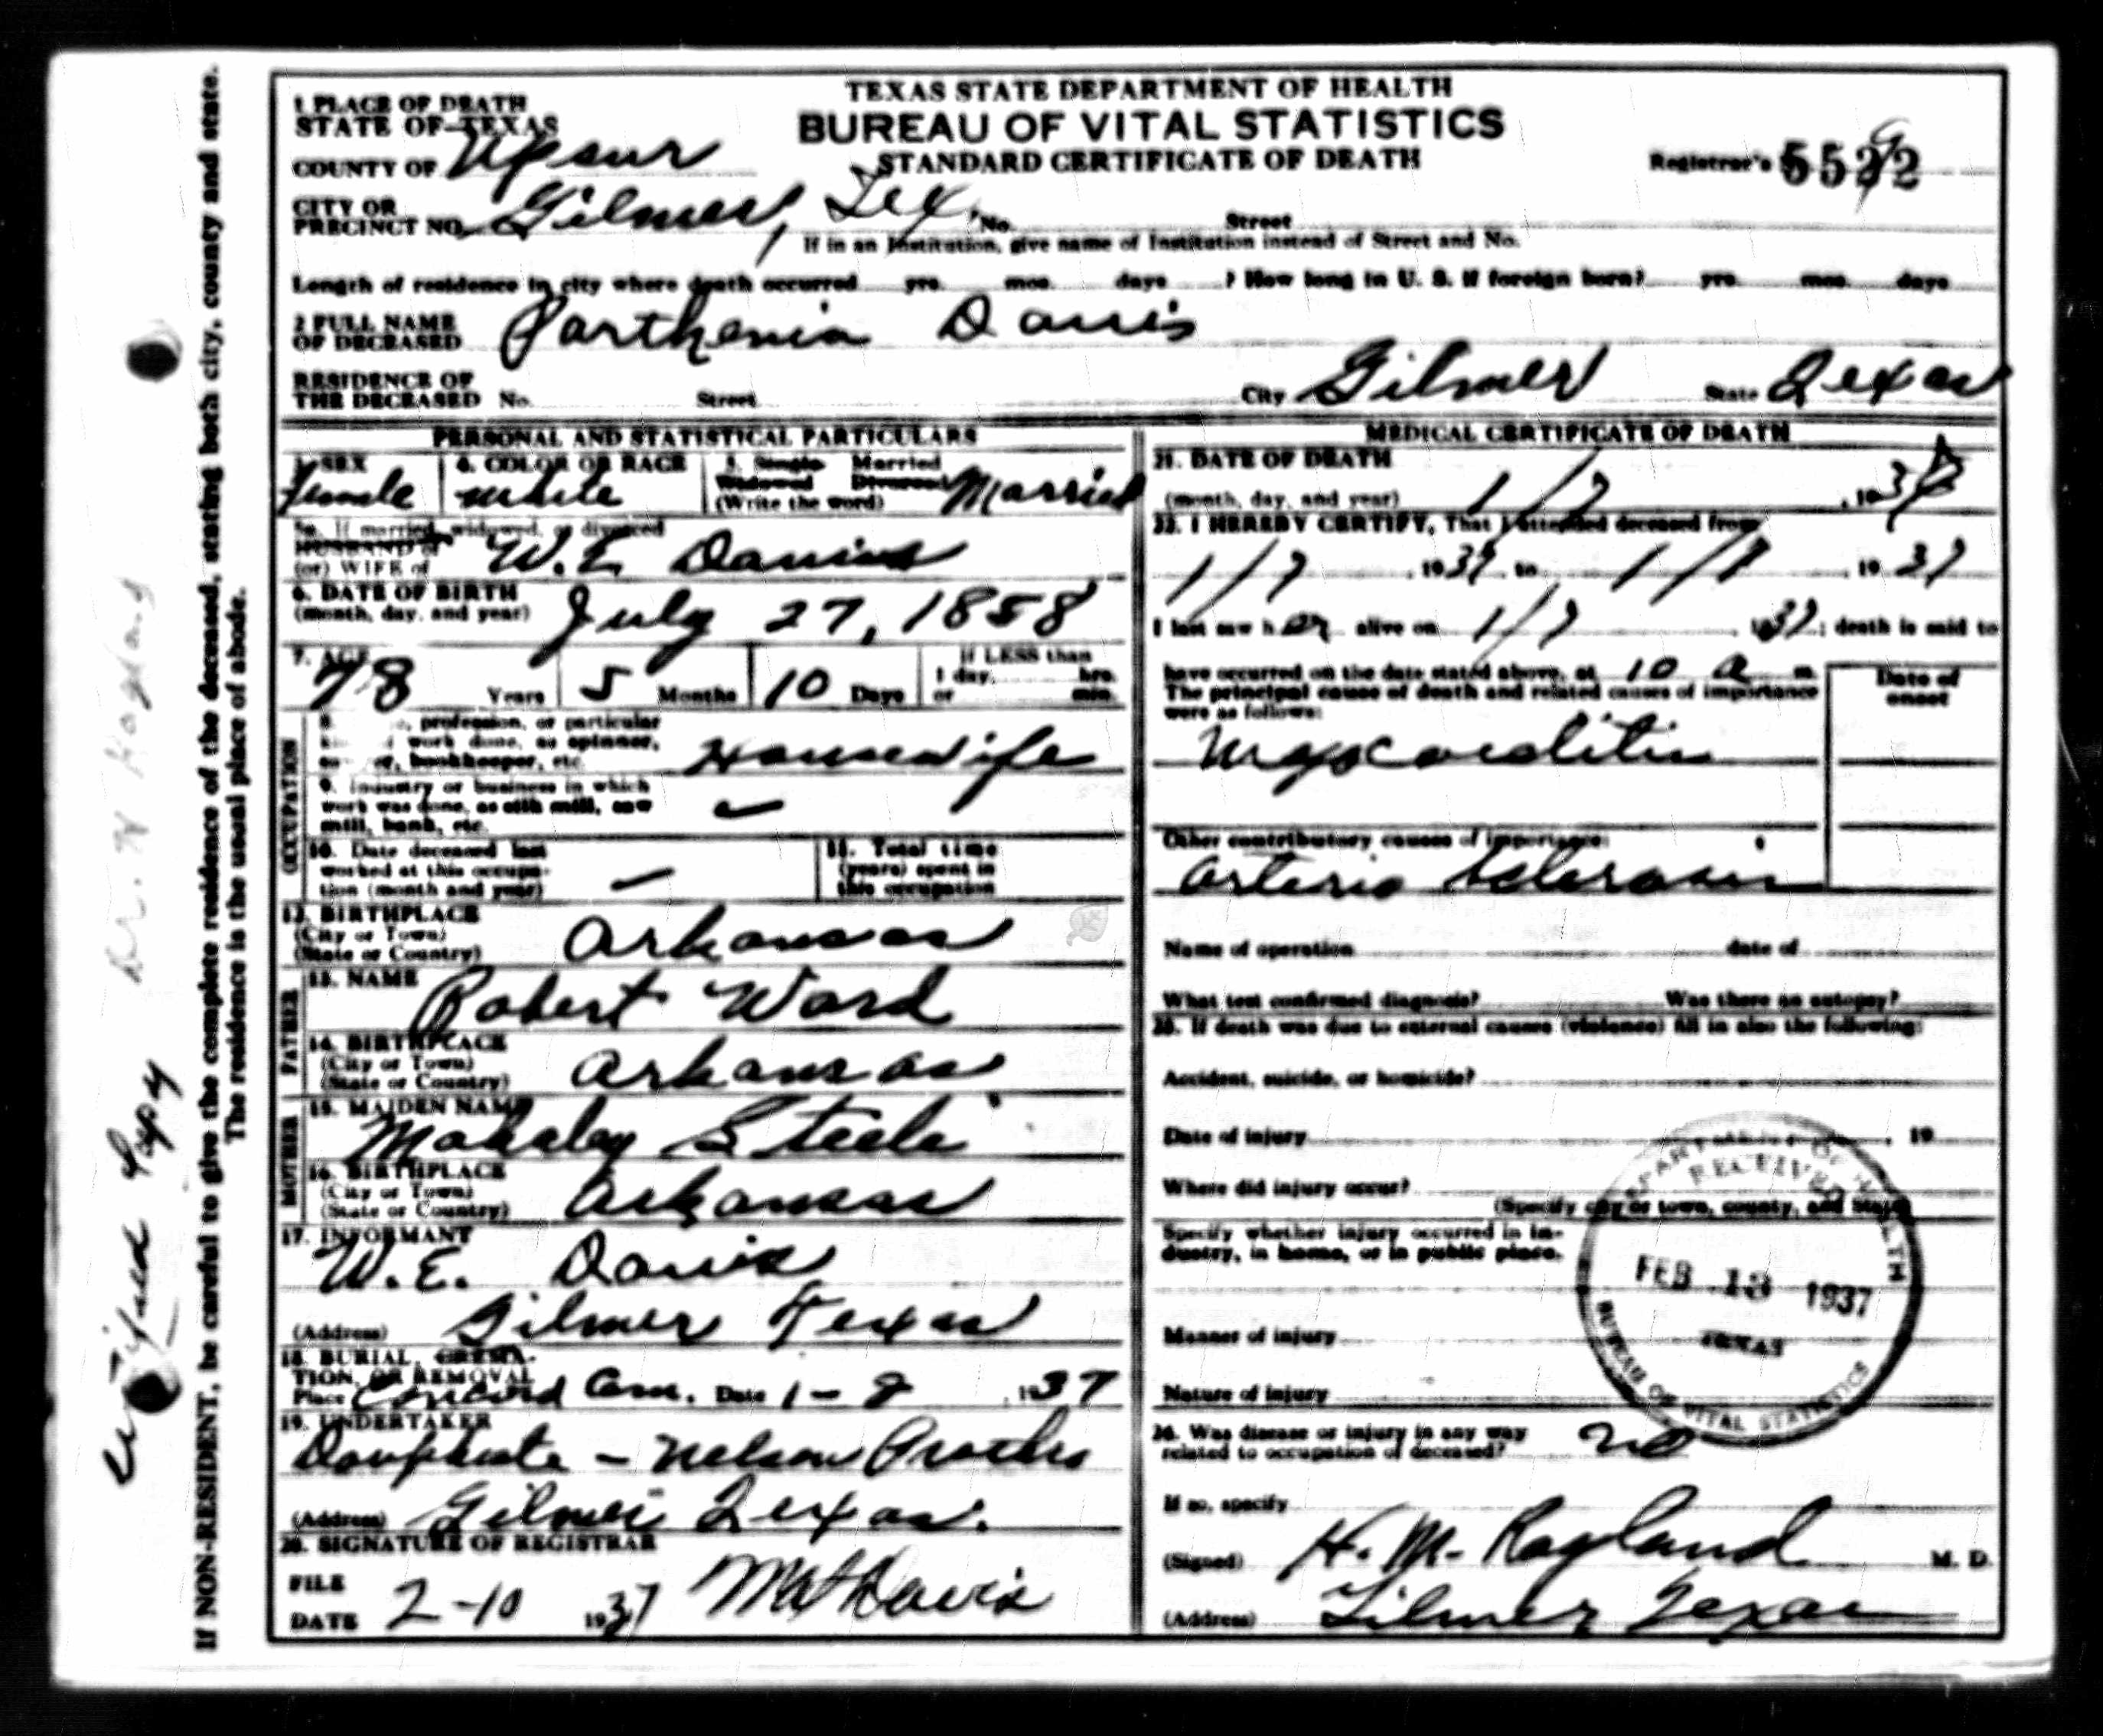 TEXAS STATE DEPARTMENT OF HEALTH
BUREAU OF VITAL STATISTICS
STANDARD CERTIFICATE OF DEATH
1 PLACE OF DEATH
STATE OF TEXAS
COUNTY OF Upsur
Registrar's 55
CITY OR
PRECINCT NO. Gilmer, Tex. No. Street
If in an Institution, give name of Institution instead of Street and No.
Length of residence in city where death occurred yrs. mos. days ? How long in U. S. if foreign born? yrs. mos. days
2 FULL NAME
OF DECEASED Parthenia Davis
RESIDENCE OF
THE DECEASED No. Street City Gilmer State Texas
PERSONAL AND STATISTICAL PARTICULARS
3. SEX Female
4. COLOR OR RACE white
5. Single Married
Widowed Divorced
(Write the word) Married
5a. If married, widowed, or divorced
HUSBAND of
(or) WIFE of W. E. Davis
6. DATE OF BIRTH
(month, day, and year) July 27, 1858
7. AGE 78 Years 5 Months 10 Days
If LESS than
1 day, hrs.
or min.
OCCUPATION
8. , profession, or particular
work done, as spinner,
bookkeeper, etc. Housewife
9. Industry or business in which
work was done, as silk mill, saw
mill, bank, etc. –
10. Date deceased last
worked at this occupa-
tion (month and year) –
11. Total time
(years) spent in
this occupation
12. BIRTHPLACE
(City or Town)
(State or Country) Arkansas
FATHER
13. NAME Robert Ward
14. BIRTHPLACE
(City or Town)
(State or Country) Arkansas
MOTHER
15. MAIDEN NAME Mahaley Steele
16. BIRTHPLACE
(City or Town)
(State or Country) Arkansas
17. INFORMANT
W. E. Davis
(Address) Gilmer Texas
18. BURIAL, CREMA-
TION, OR REMOVAL
Place Concord Cem. Date 1-8, 1937
19. UNDERTAKER
– Nelson
(Address) Gilmer Texas.
20. SIGNATURE OF REGISTRAR
FILE
DATE 2-10 1937 Davis
MEDICAL CERTIFICATE OF DEATH
21. DATE OF DEATH
(month, day, and year) 1/7, 193
22. I HEREBY CERTIFY, That I attended deceased from
1/7, 1937, to 1/7, 1937
I last saw her alive on 1/7, 1937; death is said to
have occurred on the date stated above, at 10 a m.
The principal cause of death and related causes of importance
were as follows:
Date of
onset
Myocarditis
Other contributory causes of importance:
Arterio sclerosis
Name of operation date of
What test confirmed diagnosis? Was there an autopsy?
23. If death was due to external causes (violence) fill in also the following:
Accident, suicide, or homicide?
Date of injury , 19
Where did injury occur?
(Specify city or town, county, and State)
Specify whether injury occurred in in-
dustry, in home, or in public place.
Manner of injury
Nature of injury
24. Was disease or injury in any way
related to occupation of deceased? no
If so, specify
(Signed) H. M. Ragland M. D.
(Address) Gilmer Texas
DEPARTMENT OF HEALTH
RECEIVED
FEB 13 1937
TEXAS
BUREAU OF VITAL STATISTICS
If NON-RESIDENT, be careful to give the complete residence of the deceased, stating both city, county and state.
The residence is the usual place of abode.
Certified Copy